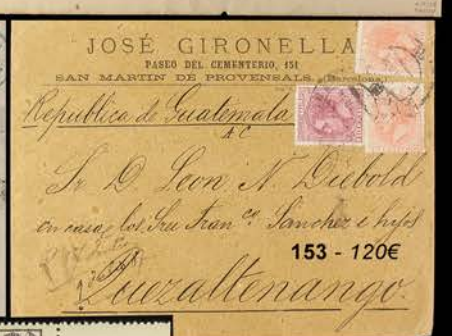 JOSÉ GIRONELLA
PASEO DEL CEMENTERIO, 151
SAN MARTIN DE PROVENSALS. (Barcelona)
Republica de Guatemala
A C
Sr. D. Leon N. Diebold
en casa los Sres Fran.co Sanchez e hijos
153 - 120€
Quezaltenango.